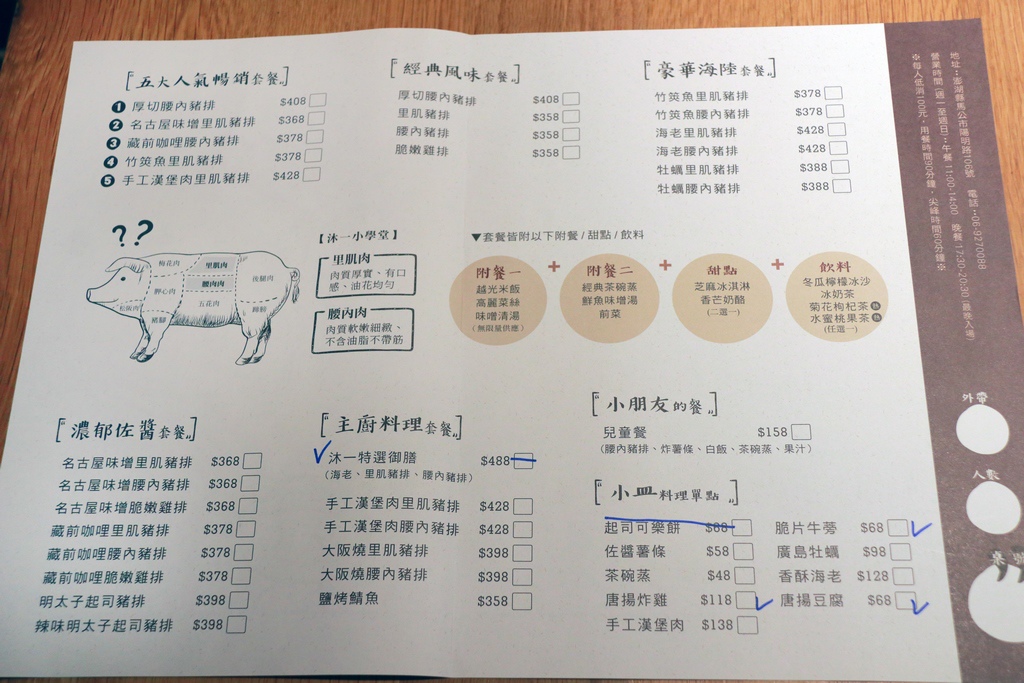 五大人氣暢銷套餐
❶ 厚切腰內豬排 $408
❷ 名古屋味增里肌豬排 $368
❸ 藏前咖哩腰內豬排 $378
❹ 竹筴魚里肌豬排 $378
❺ 手工漢堡肉里肌豬排 $428
經典風味套餐
厚切腰內豬排 $408
里肌豬排 $358
腰內豬排 $358
脆嫩雞排 $358
豪華海陸套餐
竹筴魚里肌豬排 $378
竹筴魚腰內豬排 $378
海老里肌豬排 $428
海老腰內豬排 $428
牡蠣里肌豬排 $388
牡蠣腰內豬排 $388
??
梅花肉
里肌肉
腰內肉
五花肉
後腿肉
胛心肉
松阪肉
豬腳
蹄膀
【沐一小學堂】
里肌肉
肉質厚實、有口
感、油花均勻
腰內肉
肉質軟嫩細緻、
不含油脂不帶筋
▼套餐皆附以下附餐/甜點/飲料
附餐一
越光米飯
高麗菜絲
味噌清湯
(無限量供應)
+
附餐二
經典茶碗蒸
鮮魚味增湯
前菜
+
甜點
芝麻冰淇淋
香芒奶酪
(二選一)
+
飲料
冬瓜檸檬冰沙
冰奶茶
菊花枸杞茶 熱
水蜜桃果茶 熱
(任選一)
濃郁佐醬套餐
名古屋味增里肌豬排 $368
名古屋味增腰內豬排 $368
名古屋味增脆嫩雞排 $368
藏前咖哩里肌豬排 $378
藏前咖哩腰內豬排 $378
藏前咖哩脆嫩雞排 $378
明太子起司豬排 $398
辣味明太子起司豬排 $398
主廚料理套餐
沐一特選御膳 $488
(海老、里肌豬排、腰內豬排)
手工漢堡肉里肌豬排 $428
手工漢堡肉腰內豬排 $428
大阪燒里肌豬排 $398
大阪燒腰內豬排 $398
鹽烤鯖魚 $358
小朋友的餐
兒童餐 $158
(腰內豬排、炸薯條、白飯、茶碗蒸、果汁)
小皿料理單點
起司可樂餅 $88
佐醬薯條 $58
茶碗蒸 $48
唐揚炸雞 $118
手工漢堡肉 $138
脆片牛蒡 $68
廣島牡蠣 $98
香酥海老 $128
唐揚豆腐 $68
地址:澎湖縣馬公市陽明路106號 電話:06-9270088
營業時間(週一至週日):午餐 11:00-14:00 晚餐 17:30-20:30(最晚入場)
※每人低消100元,用餐時間90分鐘,尖峰時間60分鐘※
外帶
人數
桌號